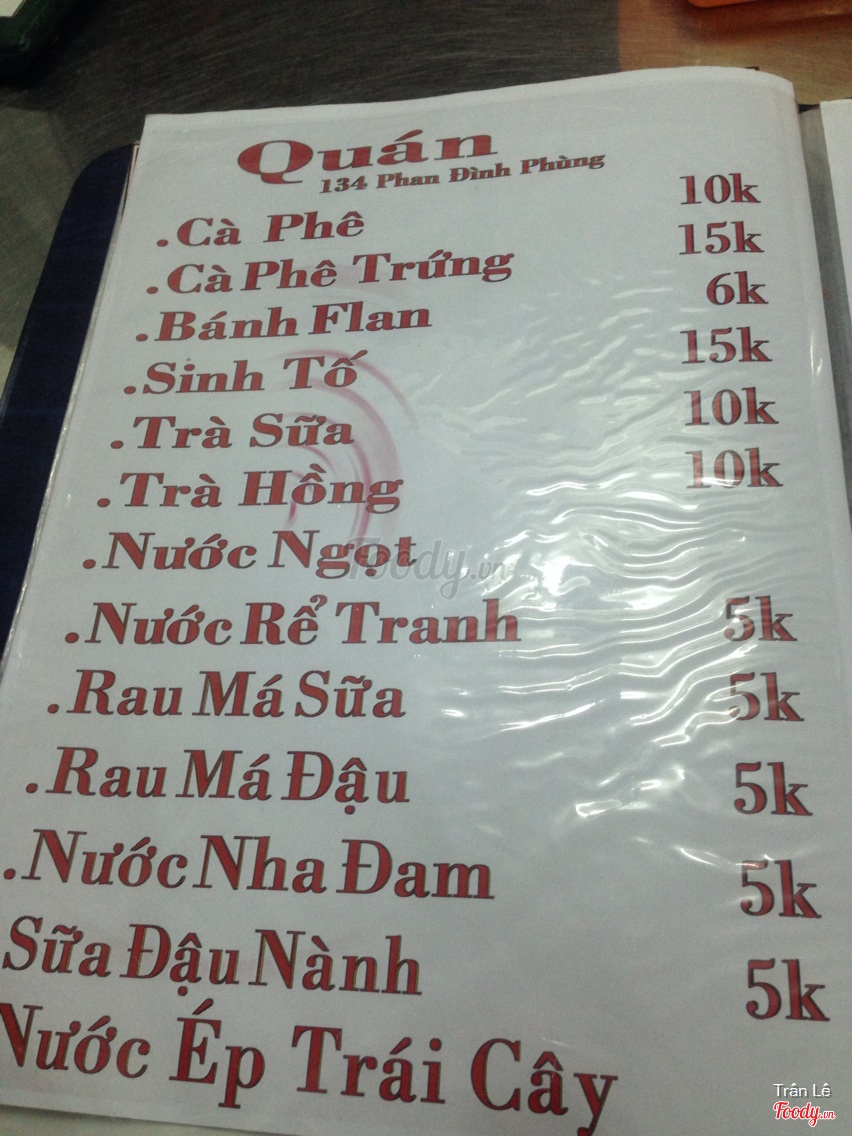 Quán
134 Phan Đình Phùng
.Cà Phê 10k
.Cà Phê Trứng 15k
.Bánh Flan 6k
.Sinh Tố 15k
.Trà Sữa 10k
.Trà Hồng 10k
.Nước Ngọt
.Nước Rể Tranh 5k
.Rau Má Sữa 5k
.Rau Má Đậu 5k
.Nước Nha Đam 5k
Sữa Đậu Nành 5k
Nước Ép Trái Cây
Foody.vn
Trân Lê
Foody.vn